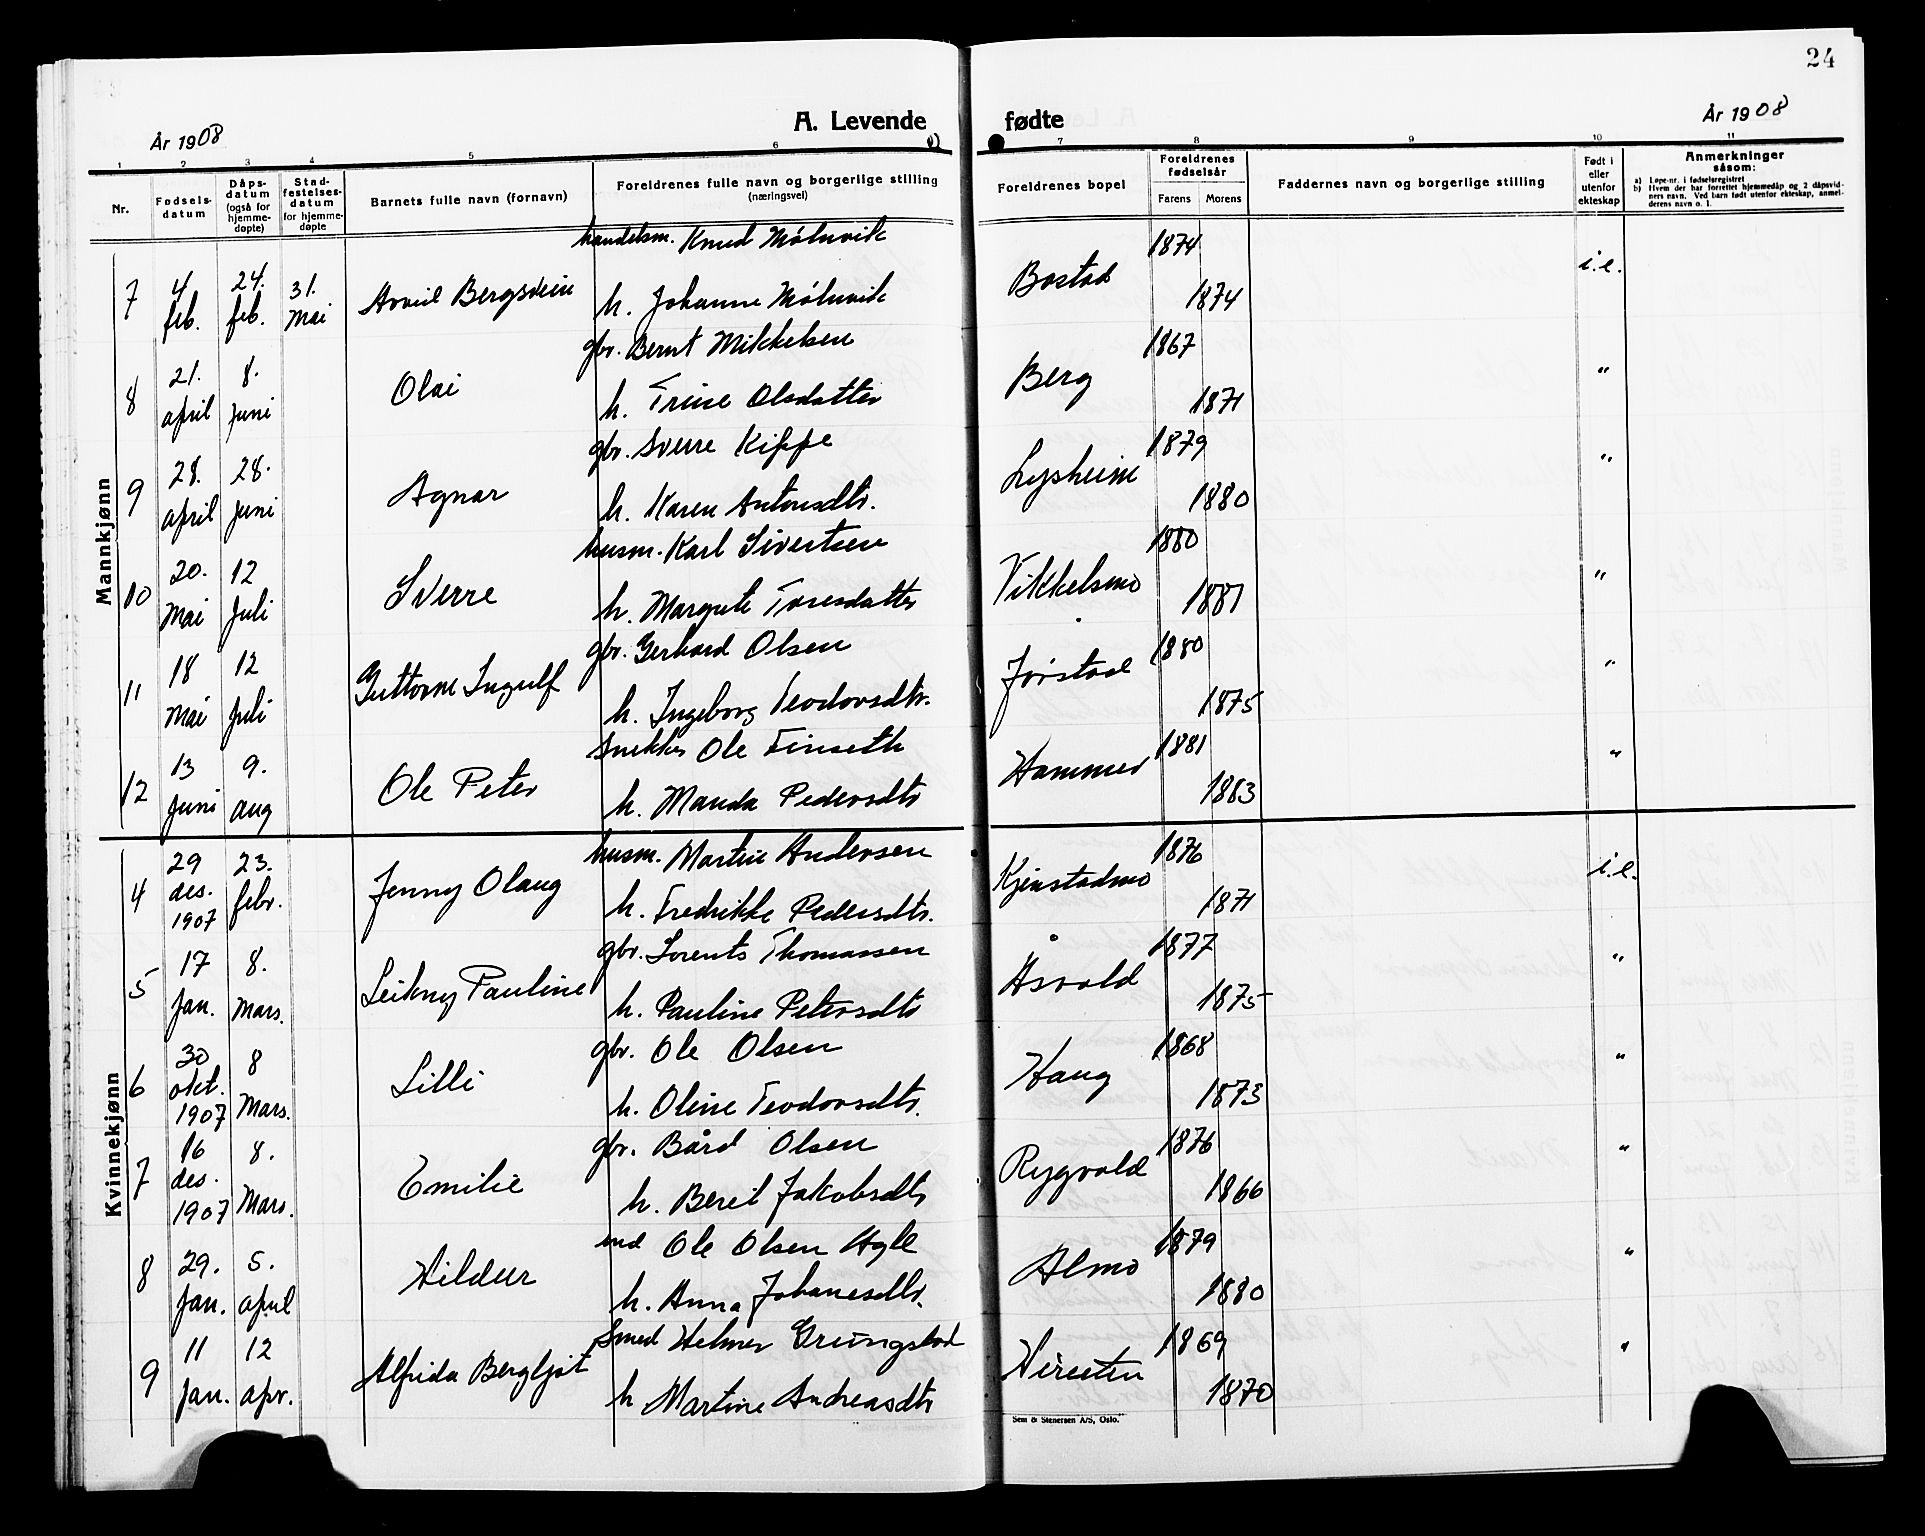 24
A. Levende fødte
År 1908
År 1908
1 2 3 4 5 6 7 8 9 10 11
Nr.
Fødsels-
datum
Dåps-
datum
(også for
hjemme-
døpte)
Stad-
festelses-
datum
for hjemme-
døpte
Barnets fulle navn (fornavn)
Foreldrenes fulle navn og borgerlige stilling
(næringsvei)
Foreldrenes bopel
Foreldrenes
fødselsår
Farens Morens
Faddernes navn og borgerlige stilling
Født i
eller
utenfor
ekteskap
Anmerkninger
såsom:
a) Løpe-nr. i fødselsregistret
b) Hvem der har forrettet hjemmedåp og 2 dåpsvid-
ners navn. Ved barn født utenfor ekteskap, anmel-
derens navn o. l.
Mannkjønn
handelsm. Knud Mølnvik 1874
7 4 feb. 24. feb. 31. Mai Bergsvein h. Johanne Mølnvik Bostad 1874 i.e.
gbr. Bernt Mikkelsen 1867
8 21. april 8. juni Olai h. Trine Olsdatter Berg 1871 "
gbr. Sverre Kippe 1879
9 28. april 28. juni Agnar h. Karen Antonsdtr. Lysheim 1880 "
husm. Karl Sivertsen 1880
10 20. Mai 12 Juli Sverre h. Margrete Toresdatter Vikkelsmo 1881 "
gbr. Gerhard Olsen 1880
11 18 Mai 12 Juli Guttorm Ingulf h. Ingeborg Teodorsdtr. Jørstad 1875 "
Snekker Ole Finseth 1881
12 13 Juni 9. aug Ole Peter h. Manda Pedersdtr Hammer 1883 "
Kvinnekjønn
husm. Martin Andersen 1876
4 29 des. 1907 23. febr. Jenny Olaug h. Fredrikke Pedersdtr. Kjenstadmo 1871 i.e.
gbr. Lorents Thomassen 1877
5 17 Jan. 8. Mars. Leikny Pauline h. Pauline Petersdtr Åsvold 1875 "
gbr. Ole Olsen 1868
6 30 okt. 1907 8 Mars. Lilli h. Oline Teodorsdtr. Haug 1873 "
gbr. Bård Olsen 1876
7 16 des. 1907 8. Mars. Emilie h. Beret Jakobsdtr Rygvold 1866 "
ind Ole Olsen Agle 1879
8 29. Jan. 5. april Hildur h. Anna Johanesdtr. Almo 1880 "
Smed Helmer Grungstad 1869
9 11 Jan. 12 apr. Alfrida Bergljot h Martine Andreasdtr 1870 "
Sem & Stenersen A/S, Oslo.